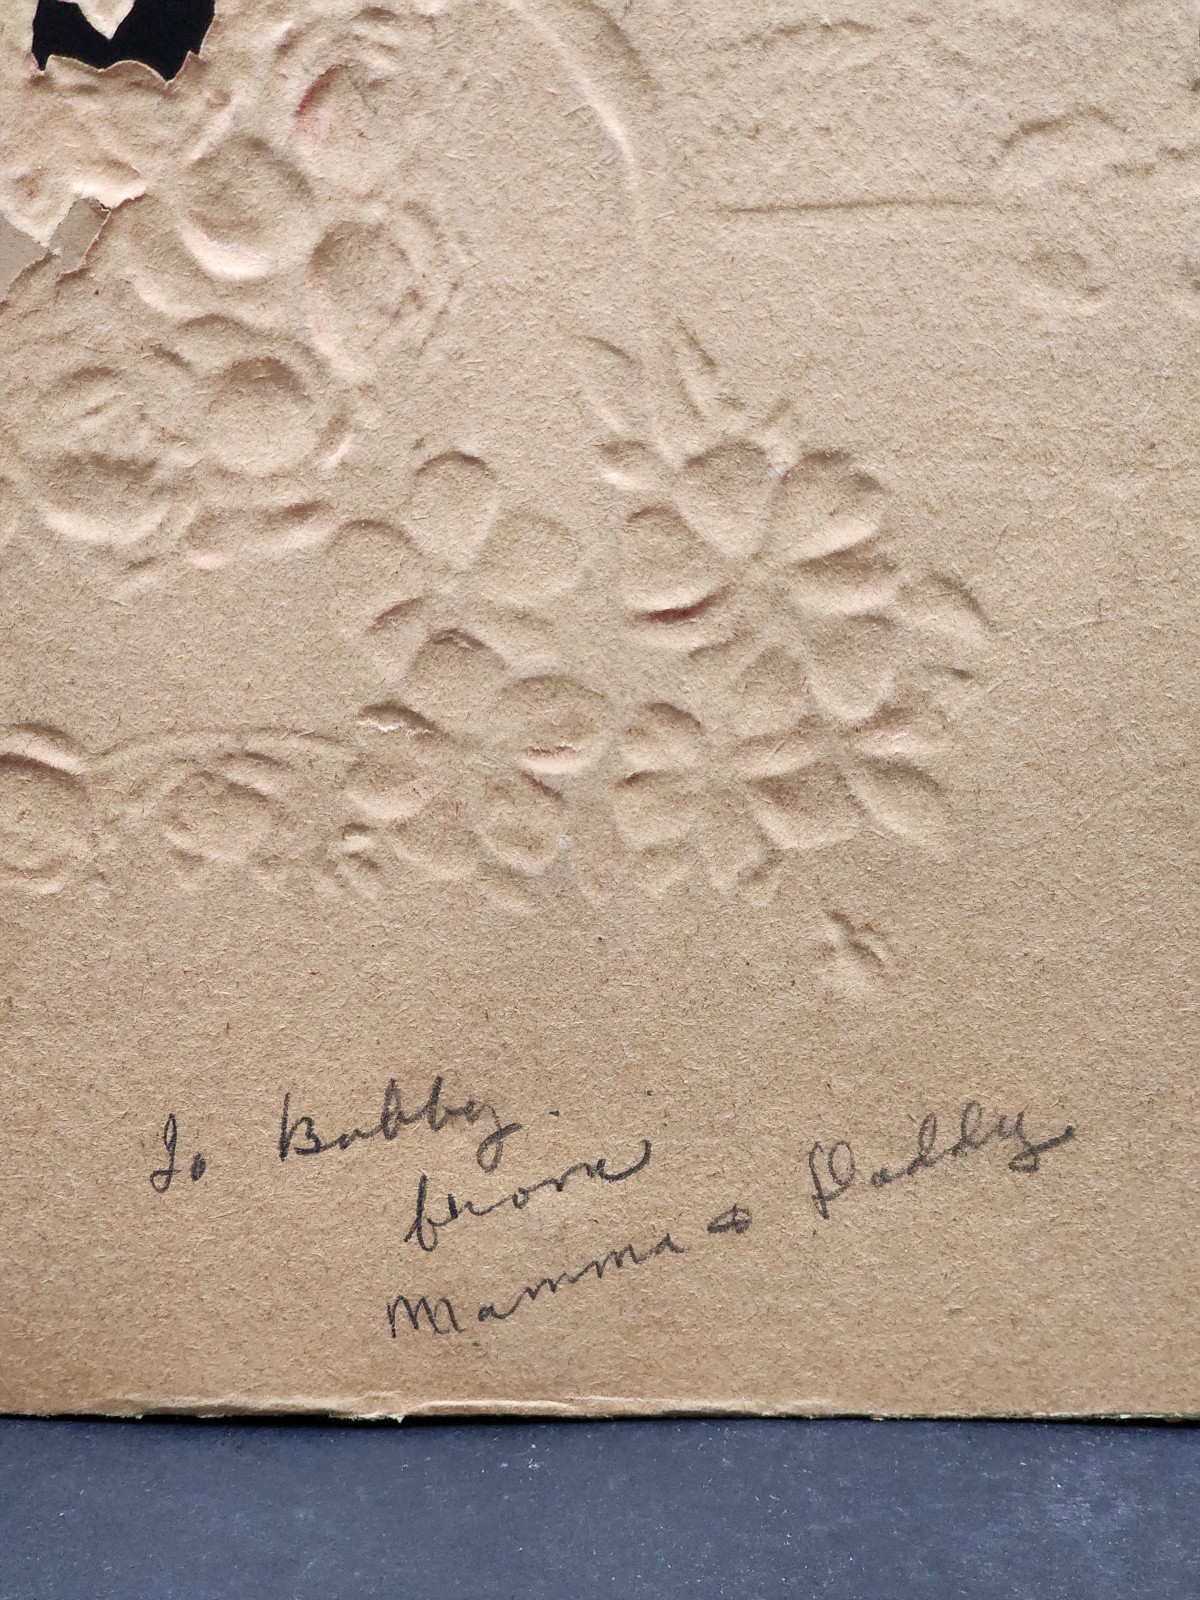 To Bobby.
from
Mamma & Daddy